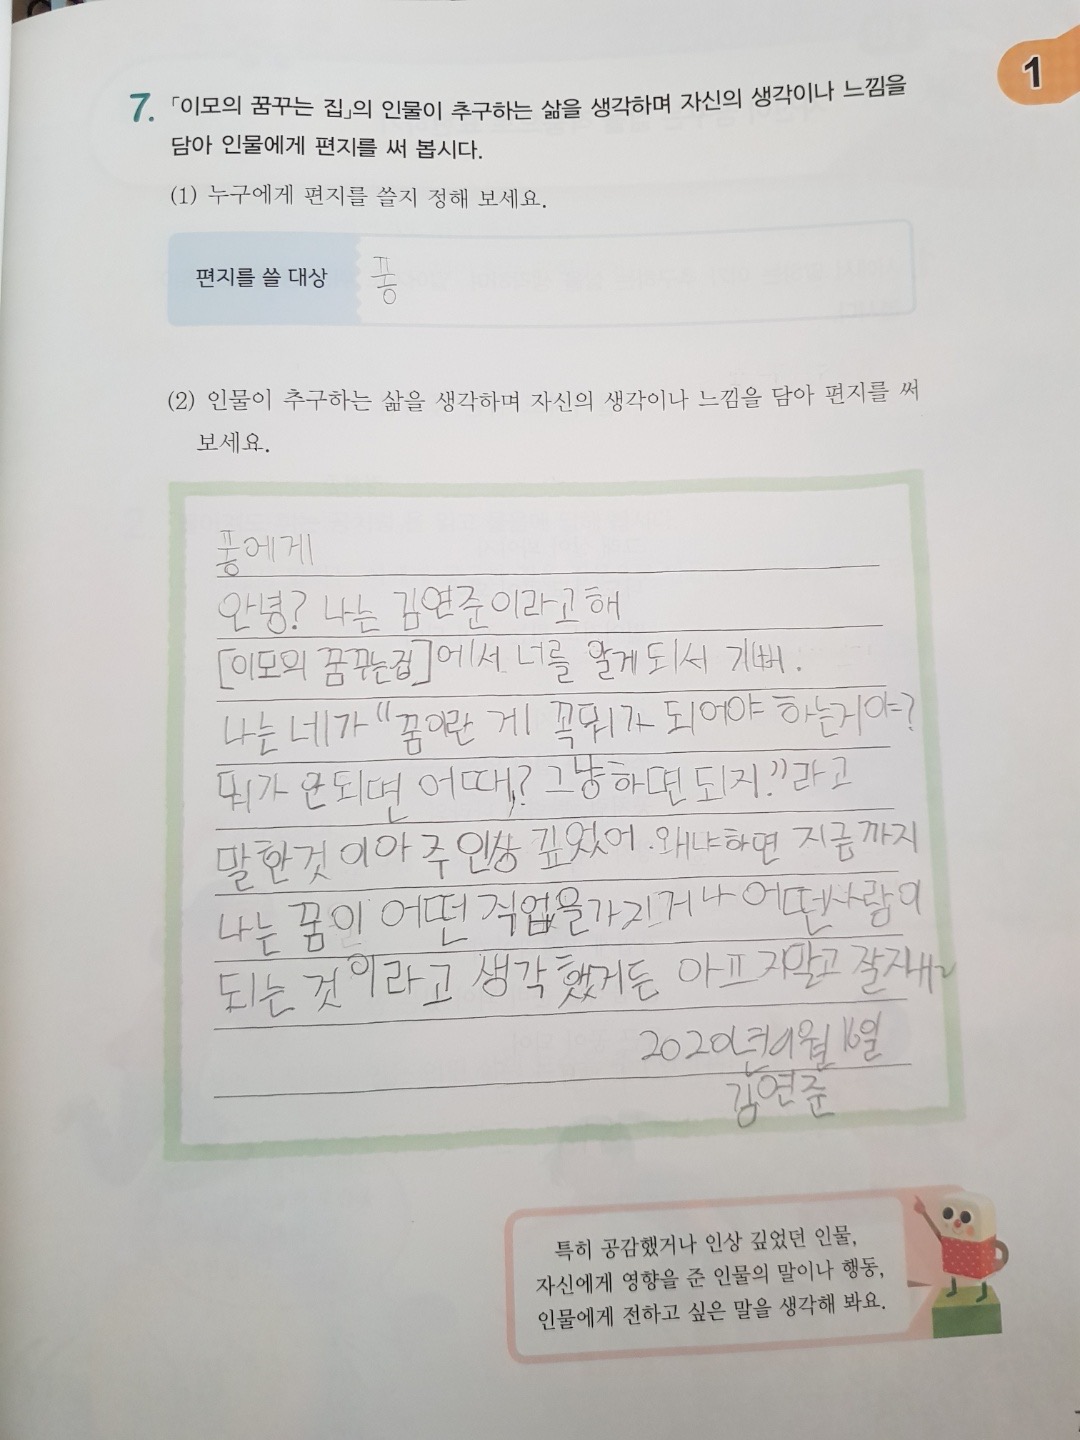 1
7. 「이모의 꿈꾸는 집」의 인물이 추구하는 삶을 생각하며 자신의 생각이나 느낌을
담아 인물에게 편지를 써 봅시다.
(1) 누구에게 편지를 쓸지 정해 보세요.
편지를 쓸 대상 퐁
(2) 인물이 추구하는 삶을 생각하며 자신의 생각이나 느낌을 담아 편지를 써
보세요.
퐁에게
안녕? 나는 김연준이라고 해
[이모의 꿈꾸는집]에서 너를 알게 되서 기뻐.
나는 네가 "꿈이란 게 꼭 뭐가 되어야 하는거야?
뭐가 안되면 어때? 그냥 하면 되지."라고
말한것 이 아주 인상 깊었어. 왜냐하면 지금까지
나는 꿈이 어떤 직업을 가지거나 어떤사람이
되는 것이라고 생각했거든 아프지말고 잘지내~
2020년 월 16일
김연준
특히 공감했거나 인상 깊었던 인물,
자신에게 영향을 준 인물의 말이나 행동,
인물에게 전하고 싶은 말을 생각해 봐요.